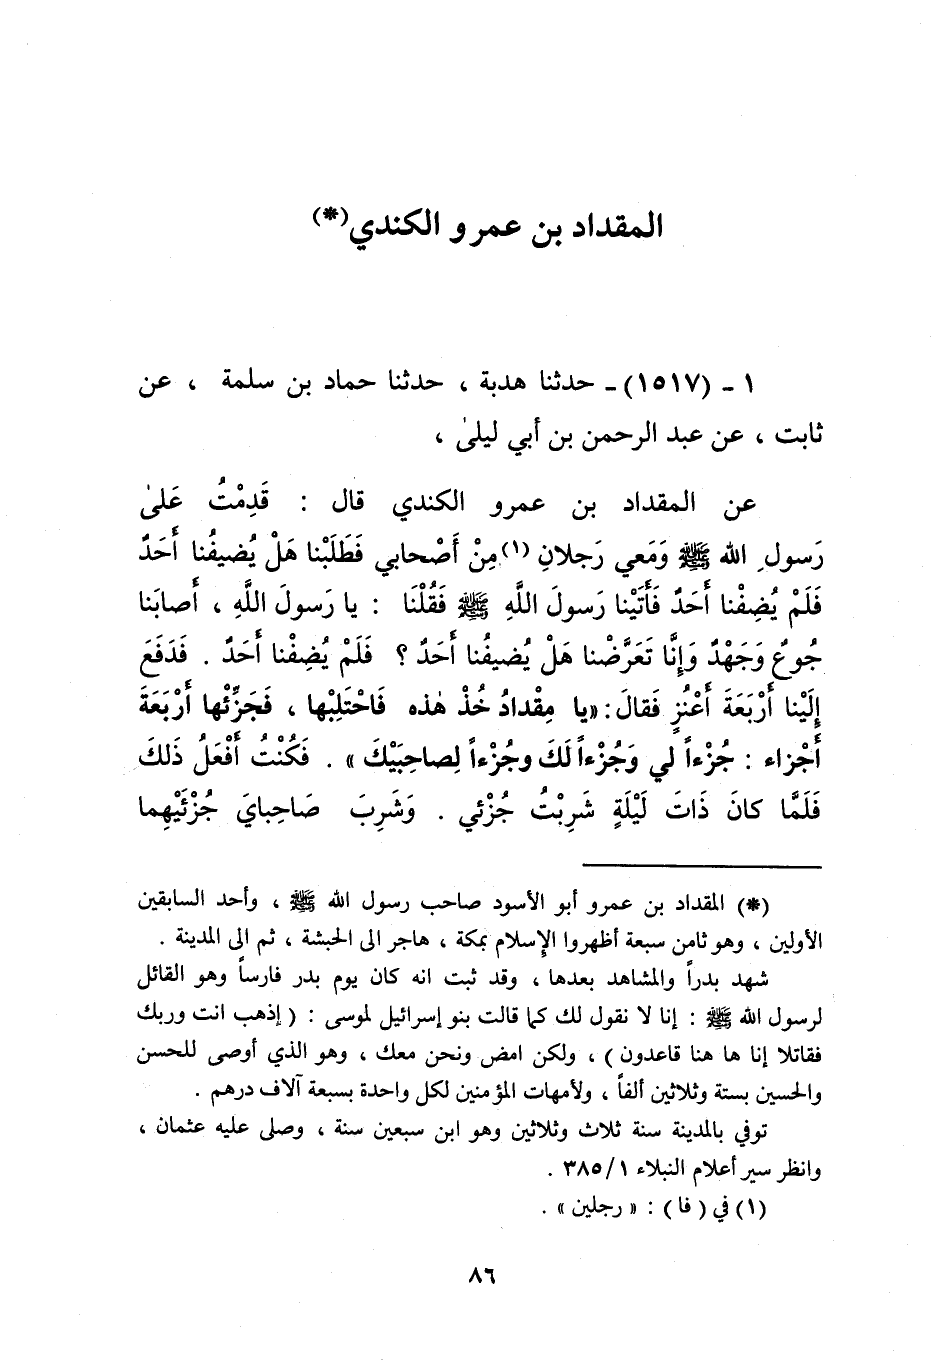 المقداد بن عمرو الكندي(*)
١ - (١٥١٧) - حدثنا هدبة ، حدثنا حماد بن سلمة ، عن
ثابت ، عن عبد الرحمن بن أبي ليلىٰ ،
عن المقداد بن عمرو الكندي قال : قَدِمْتُ عَلىٰ
رَسولِ الله ﷺ وَمَعي رَجلانِ (١) مِنْ أَصْحابي فَطَلَبْنا هَلْ يُضيفُنا أَحَدٌ
فَلَمْ يُضِفْنا أَحَدٌ فَأَتَيْنا رَسولَ اللَّهِ ﷺ فَقُلْنَا : يا رَسولَ اللَّهِ ، أَصابَنا
جُوعٌ وَجَهْدٌ وَإِنَّا تَعَرَّضْنا هَلْ يُضيفُنا أَحَدٌ ؟ فَلَمْ يُضِفْنا أَحَدٌ . فَدَفَعَ
إِلَيْنا أَرْبَعَةَ أَعْنُزٍ فَقالَ : «يا مِقْدادُ خُذْ هٰذه فَاحْتَلِبْها ، فَجَزِّئْها أَرْبَعَةَ
أَجْزاء : جُزْءاً لي وَجُزْءاً لَكَ وجُزْءاً لِصاحِبَيْكَ » . فَكُنْتُ أَفْعَلُ ذَلكَ
فَلَمَّا كانَ ذَاتَ لَيْلَةٍ شَرِبْتُ جُزْئي . وَشَرِبَ صَاحِبايَ جُزْئَيْهِما
(*) المقداد بن عمرو أبو الأسود صاحب رسول الله ﷺ ، وأحد السابقين
الأولين ، وهو ثامن سبعة أظهروا الإسلام بمكة ، هاجر الى الحبشة ، ثم الى المدينة .
شهد بدراً والمشاهد بعدها ، وقد ثبت انه كان يوم بدر فارساً وهو القائل
لرسول الله ﷺ : إنا لا نقول لك كما قالت بنو إسرائيل لموسى : ( إذهب انت وربك
فقاتلا إنا ها هنا قاعدون ) ، ولكن امض ونحن معك ، وهو الذي أوصى للحسن
والحسين بستة وثلاثين ألفاً ، ولأمهات المؤمنين لكل واحدة بسبعة آلاف درهم .
توفي بالمدينة سنة ثلاث وثلاثين وهو ابن سبعين سنة ، وصلى عليه عثمان ،
وانظر سير أعلام النبلاء ٣٨٥/١ .
(١) في ( فا ) : « رجلين » .
٨٦